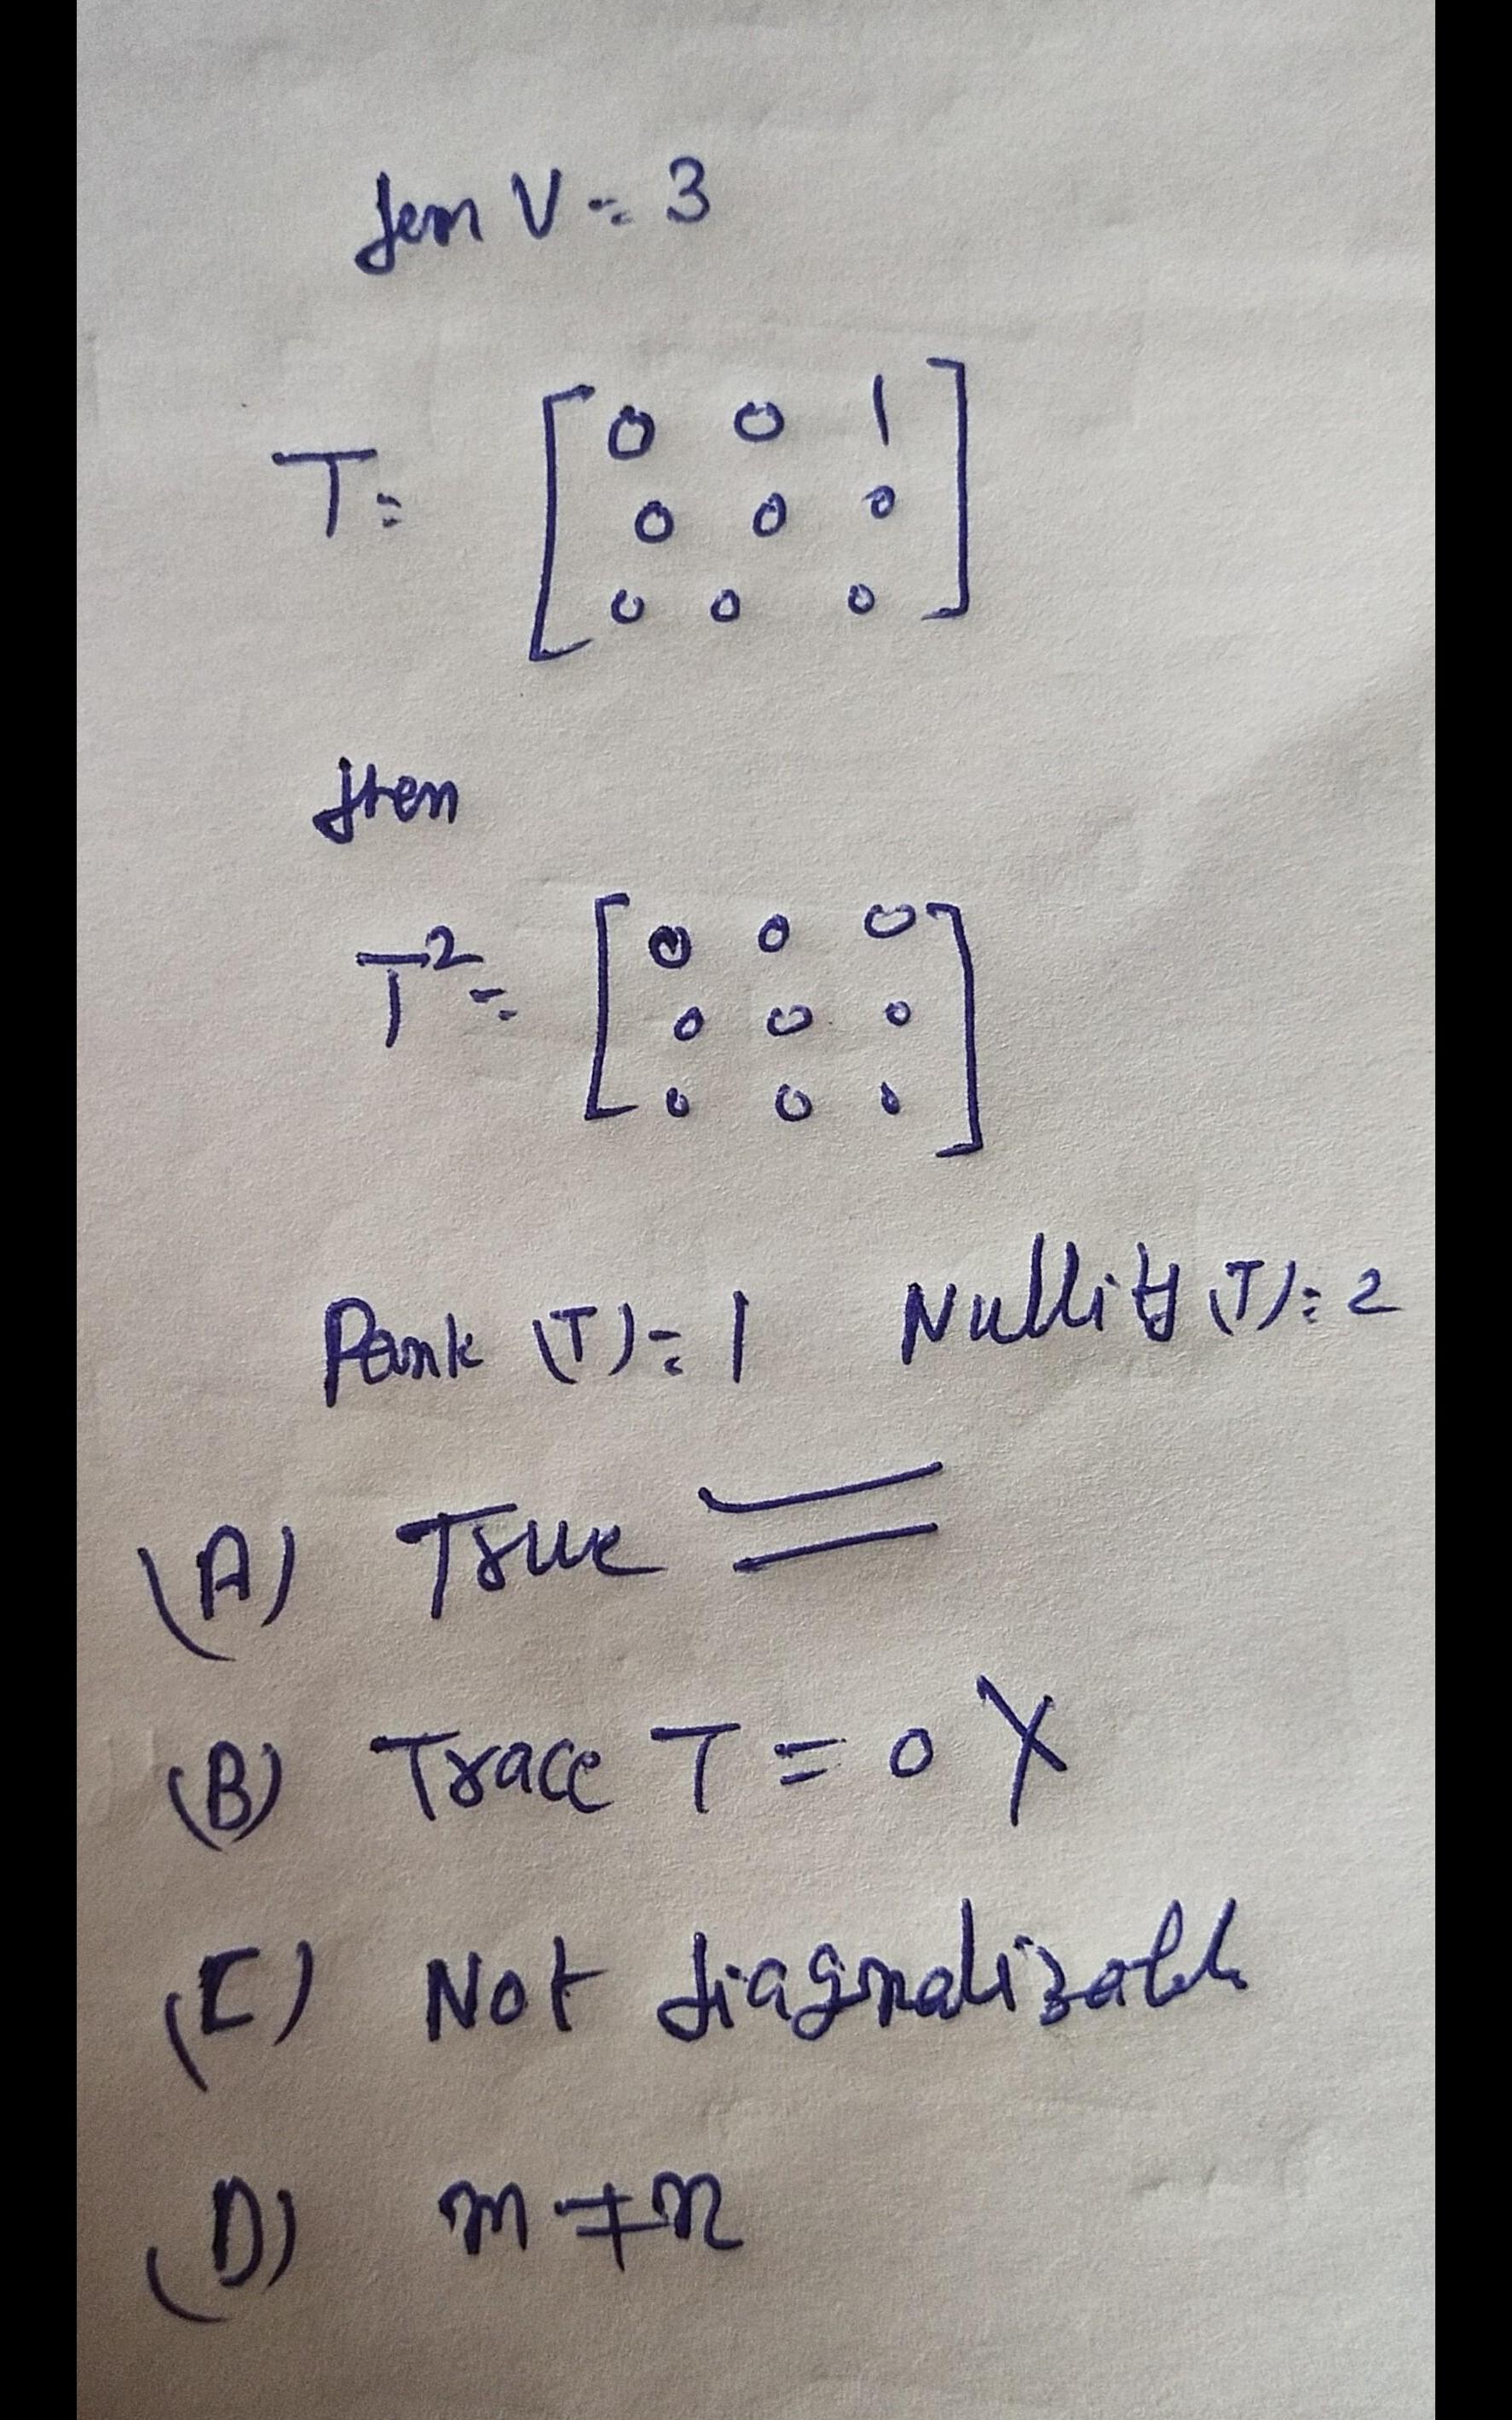 dim V = 3
T = [ 0 0 1
0 0 0
0 0 0 ]
then
T² = [ 0 0 0
0 0 0
0 0 0 ]
Rank (T) = 1 Nullity (T) = 2
(A) True
(B) Trace T = 0 X
(C) Not diagonalizable
(D) m ≠ n